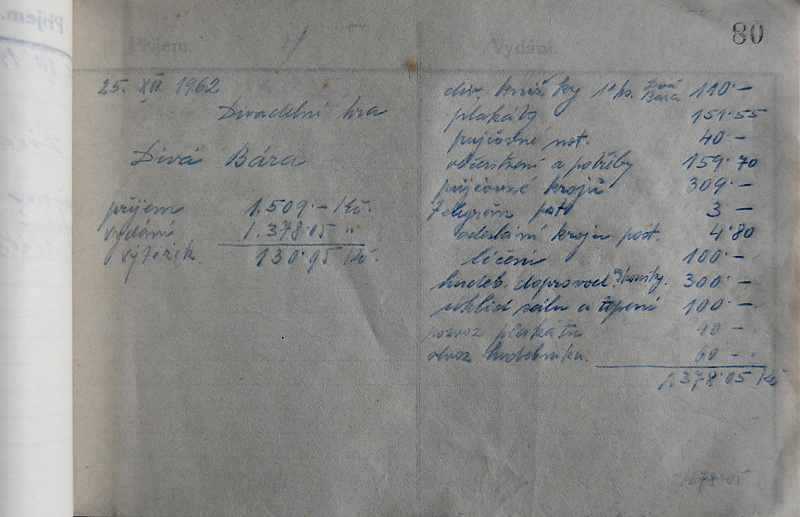 80
Příjem.
Vydání.
25. XII 1962
Divadelní hra
Divá Bára
příjem 1.509·– Kč.
vydání 1.378·05 "
výtěžek 130·95 Kč.
div. knížky 11 ks. Divá Bára 110·–
plakáty 151·55
půjčovné not. 40 –
občerstvení a potřeby 159·70
půjčovné krojů 309·–
Telegram 3 –
odeslání krojů pošt. 4·80
líčení 100·–
hudeb. doprovod 300·–
úklid sálu a topení 100·–
rozvoz plakátů 40 –
odvoz hudebníka. 60 –
1378·05 Kč